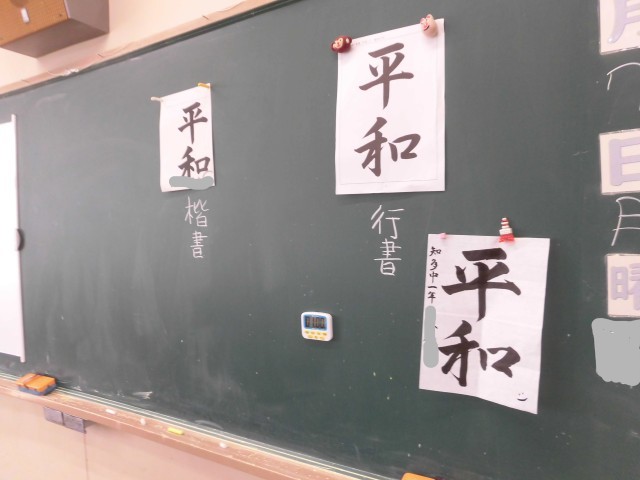 平和
楷書
平和
行書
知多中一年
平和
月
日
月
曜